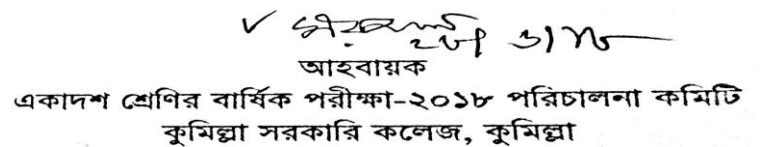 ২৮/৩/১৮
আহবায়ক
একাদশ শ্রেণির বার্ষিক পরীক্ষা-২০১৮ পরিচালনা কমিটি
কুমিল্লা সরকারি কলেজ, কুমিল্লা